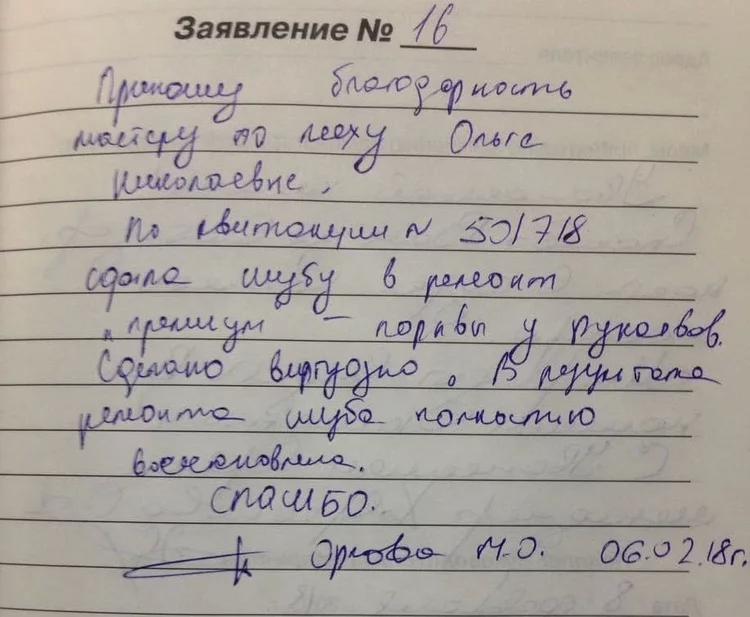 Заявление № 16
Приношу благодарность
мастеру по меху Ольге
Николаевне.
По квитанции N 501718
сдала шубу в ремонт
"премиум – порывы у рукавов.
Сделано виртуозно. В результате
ремонта шуба полностью
восстановлена.
СПАСИБО.
Орлова М.О. 06.02.18г.